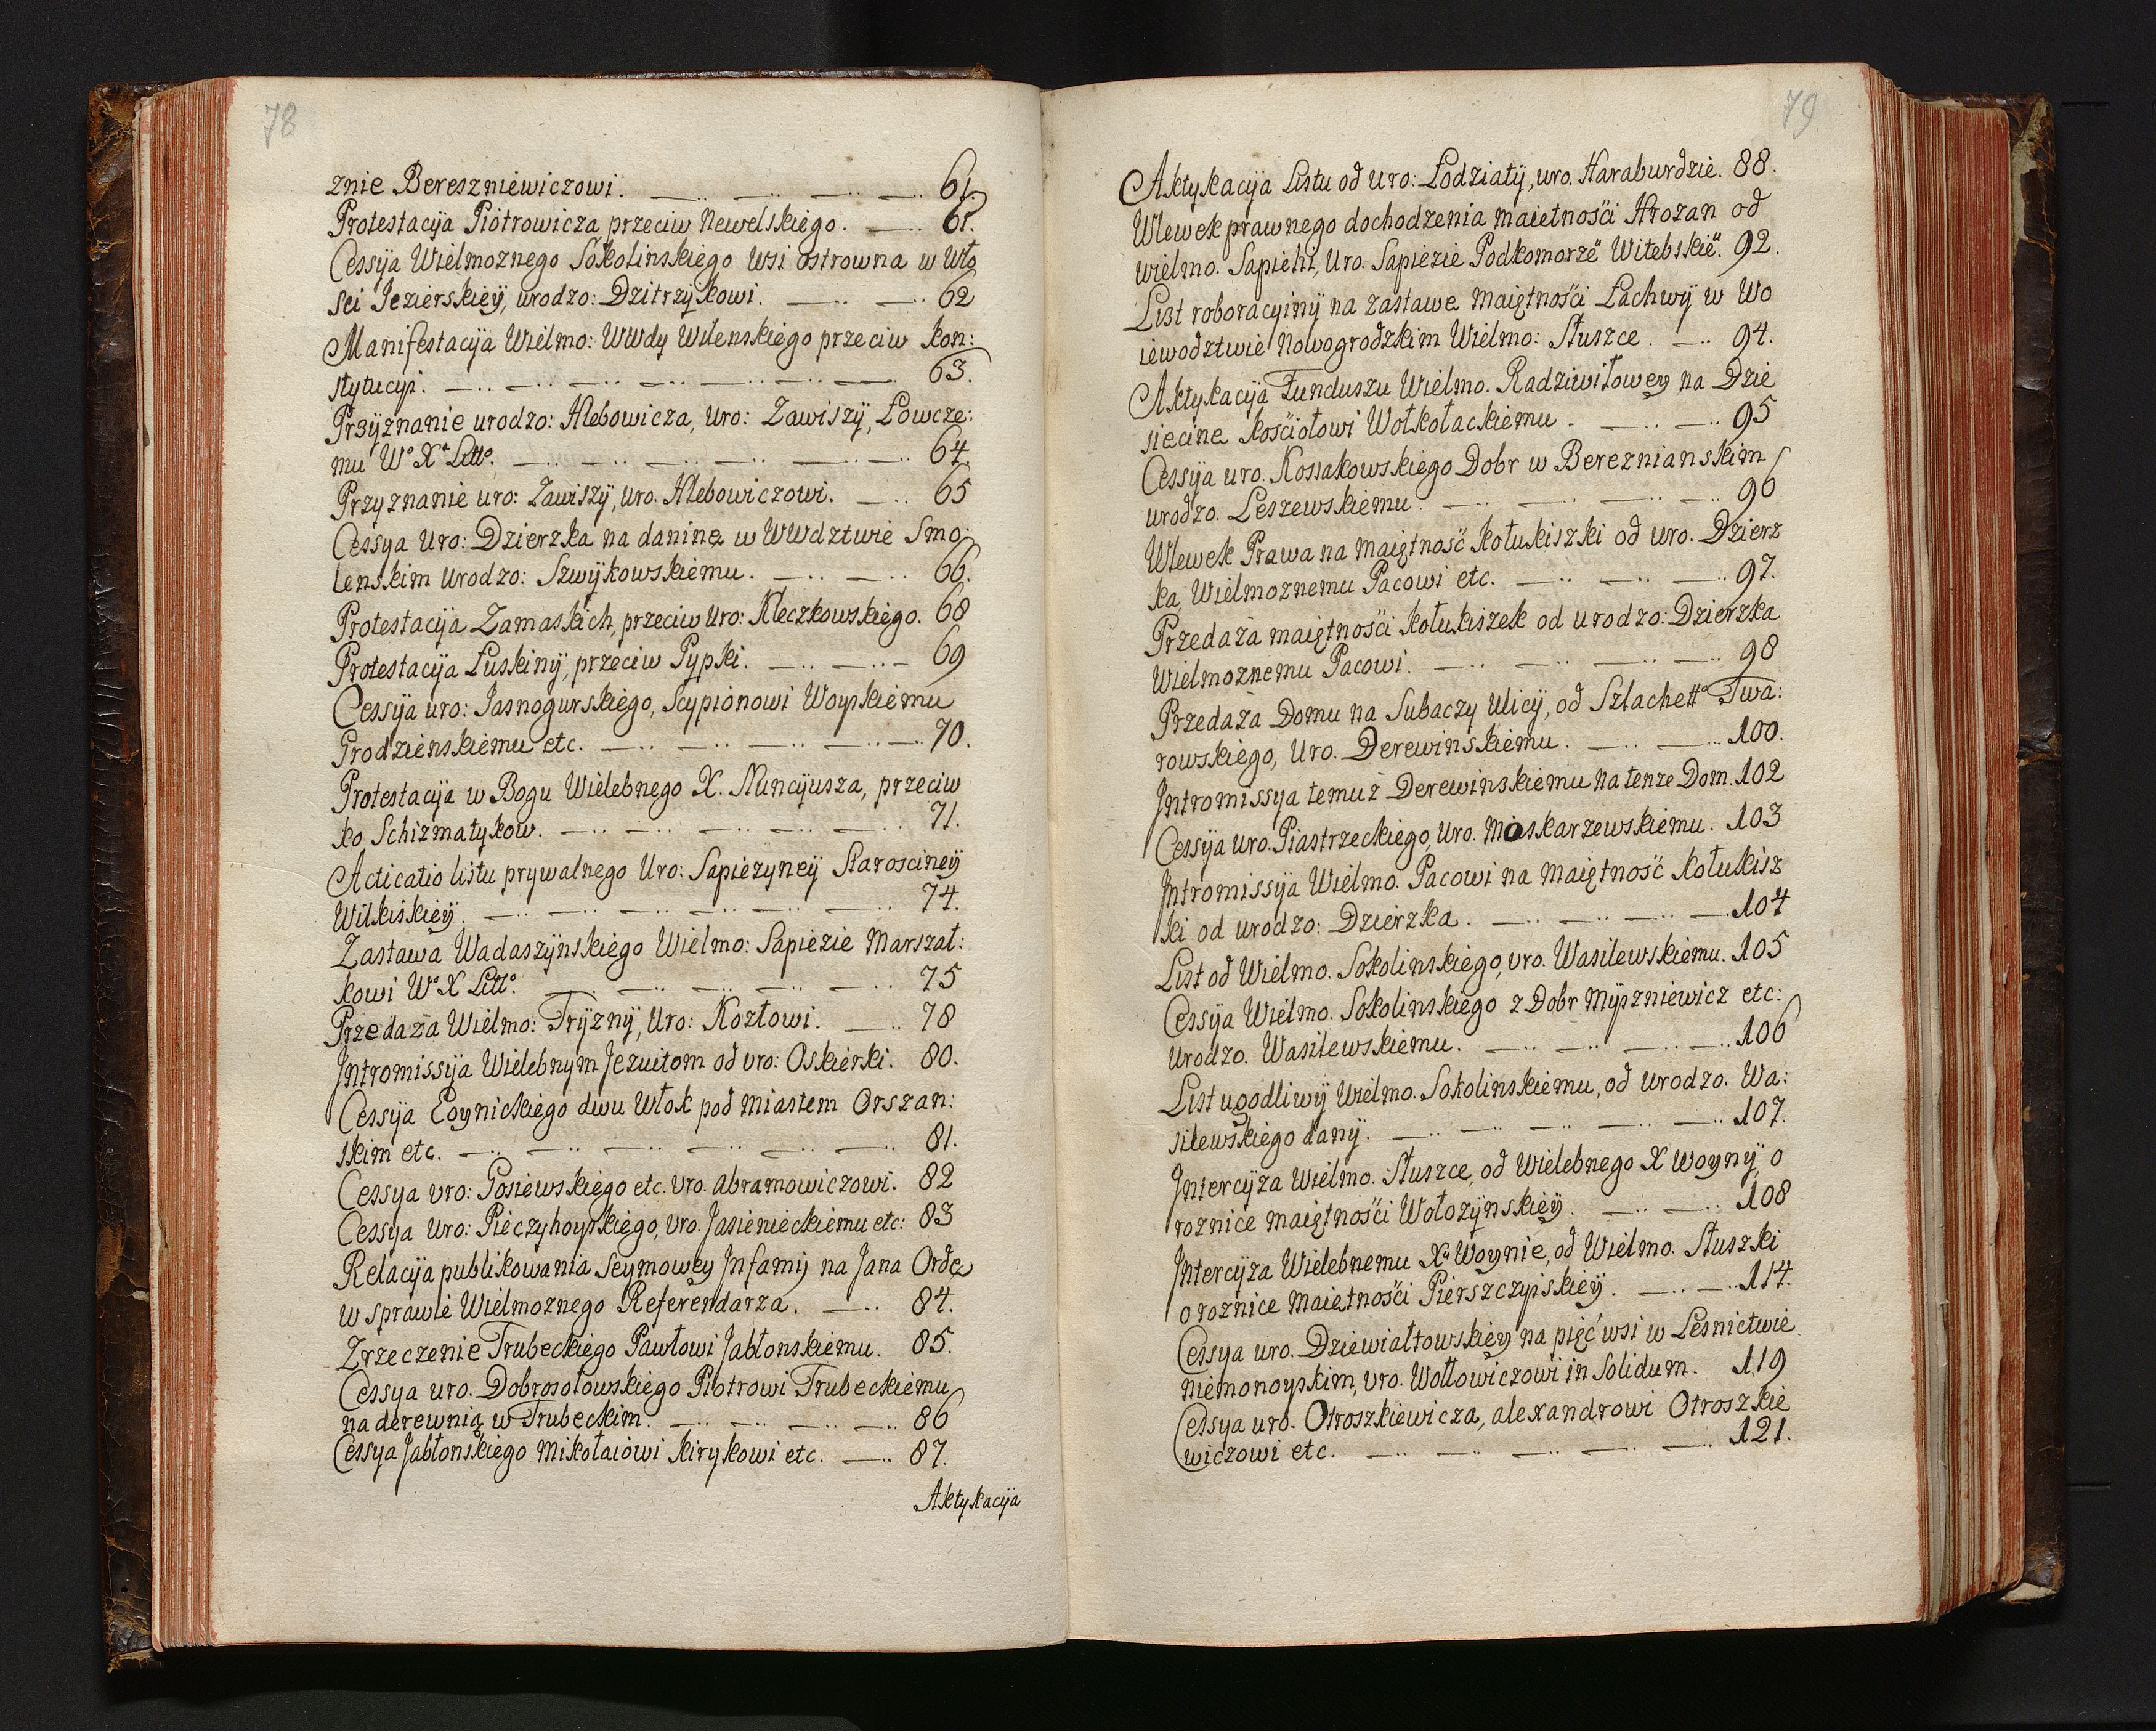 78
znie Bereszniewiczowi. 61.
Protestacÿa Piotrowicza przeciw Newelskiego. 61.
Cessÿa Wielmoznego Sokolinskiego Wsi ostrowna w Wło
sci Jezierskieÿ, urodzo: Dzitrzykowi. 62
Manifestacÿa Wielmo: WWdy Wilenskiego przeciw kon:
stytucyi. 63.
Przÿznanie urodzo: Hlebowicza, uro: Zawiszÿ, Łowcze:
mu Wo Xa Litto. 64.
Przyznanie uro: Zawiszÿ, uro. Hlebowiczowi. 65
Cessya Uro: Dzierzka na daninę w WWdztwie Smo:
lenskim Urodzo: Szwÿkowskiemu. 66.
Protestacÿa Zamaskich, przeciw Uro: Kleczkowskiego. 68
Protestacÿa Łuskinÿ, przeciw Pypki. 69
Cessÿa uro: Jasnogurskiego, Scypionowi Woyskiemu
Grodzienskiemu etc. 70.
Protestacÿa w Bogu Wielebnego X. Nuncÿusza, przeciw
ko Schizmatykow. 71.
Acticatio listu prywatnego Uro: Sapiezyneÿ Staroscineÿ
Wilkiskieÿ. 74.
Zastawa Wadaszÿnskiego Wielmo: Sapiezie Marszał:
kowi Wo X Litto. 75
Przedaża Wielmo: Trÿznÿ, Uro: Kozłowi. 78
Intromissÿa Wielebnym Jezuitom od vro: Oskierki. 80.
Cessÿa Eoynickiego dwu Włok pod miastem Orszan:
skim etc. 81.
Cessya vro: Gosiewskiego etc. vro. abramowiczowi. 82
Cessya Uro: Pieczyhoyskiego, vro. Jasienieckiemu etc: 83
Relacÿa publikowania Seymowey Infamÿ na Jana Ordę
w sprawie Wielmoznego Referendarza. 84.
Zrzeczenie Trubeckiego Pawłowi Jabłonskiemu. 85.
Cessya uro. Dobrosołowskiego Piotrowi Trubeckiemu
na derewnią w Trubeckim. 86
Cessya Jabłonskiego Mikołaiowi kirykowi etc. 87.
Aktykacÿa
79
Aktykacÿa Listu od uro: Łodziatÿ, uro. Haraburdzie. 88.
Wlewek prawnego dochodzenia maietnośći Hrozan od
wielmo. Sapiehi, Uro. Sapiezie Podkomorze Witebskie. 92.
List roboracyinÿ na zastawę maiętnośći Lachwÿ w Wo
iewodztwie Nowogrodzkim Wielmo: Słuszce. 94.
Aktykacÿa Funduszu Wielmo. Radziwiłowey na Dzie
siecinę kośćiołowi Wołkołackiemu. 95
Cessÿa uro. Kossakowskiego Dobr w Bereznianskim
urodzo. Leszewskiemu. 96
Wlewek Prawa na maiętność kołukiszki od uro. Dzierz
ka, Wielmoznemu Pacowi etc. 97.
Przedaża maiętnośći kołukiszek od urodzo: Dzierzka
Wielmoznemu Pacowi. 98
Przedaża Domu na Subaczy Ulicÿ, od Szlachetto Twa:
rowskiego, Uro. Derewinskiemu. 100.
Intromissya temuż Derewinskiemu na tenze Dom. 102
Cessÿa uro. Piastrzeckiego, Uro. Moskarzewskiemu. 103
Intromissÿa Wielmo. Pacowi na maiętność kołukisz
ki od urodzo: Dzierzka. 104
List od Wielmo. Sokolinskiego, vro. Wasilewskiemu. 105
Cessÿa Wielmo. Sokolinskiego z Dobr Mÿszniewicz etc:
Urodzo. Wasilewskiemu. 106
List ugodliwÿ Wielmo. Sokolinskiemu, od Urodzo. Wa:
silewskiego danÿ. 107.
Intercÿza Wielmo. Słuszce, od Wielebnego X Woynÿ o
roznice maiętnośći Wołozÿnskieÿ. 108
Intercÿza Wielebnemu Xu Woynie, od Wielmo. Słuszki
o roznice maiętnośći Pierszczyskieÿ. 114.
Cessya uro. Dziewiałtowskiey na pięć wsi w Lesnictwie
niemonoyskim, vro. Wołłowiczowi in Solidum. 119
Cessya uro. Otroszkiewicza, alexandrowi Otroszkie
wiczowi etc. 121.